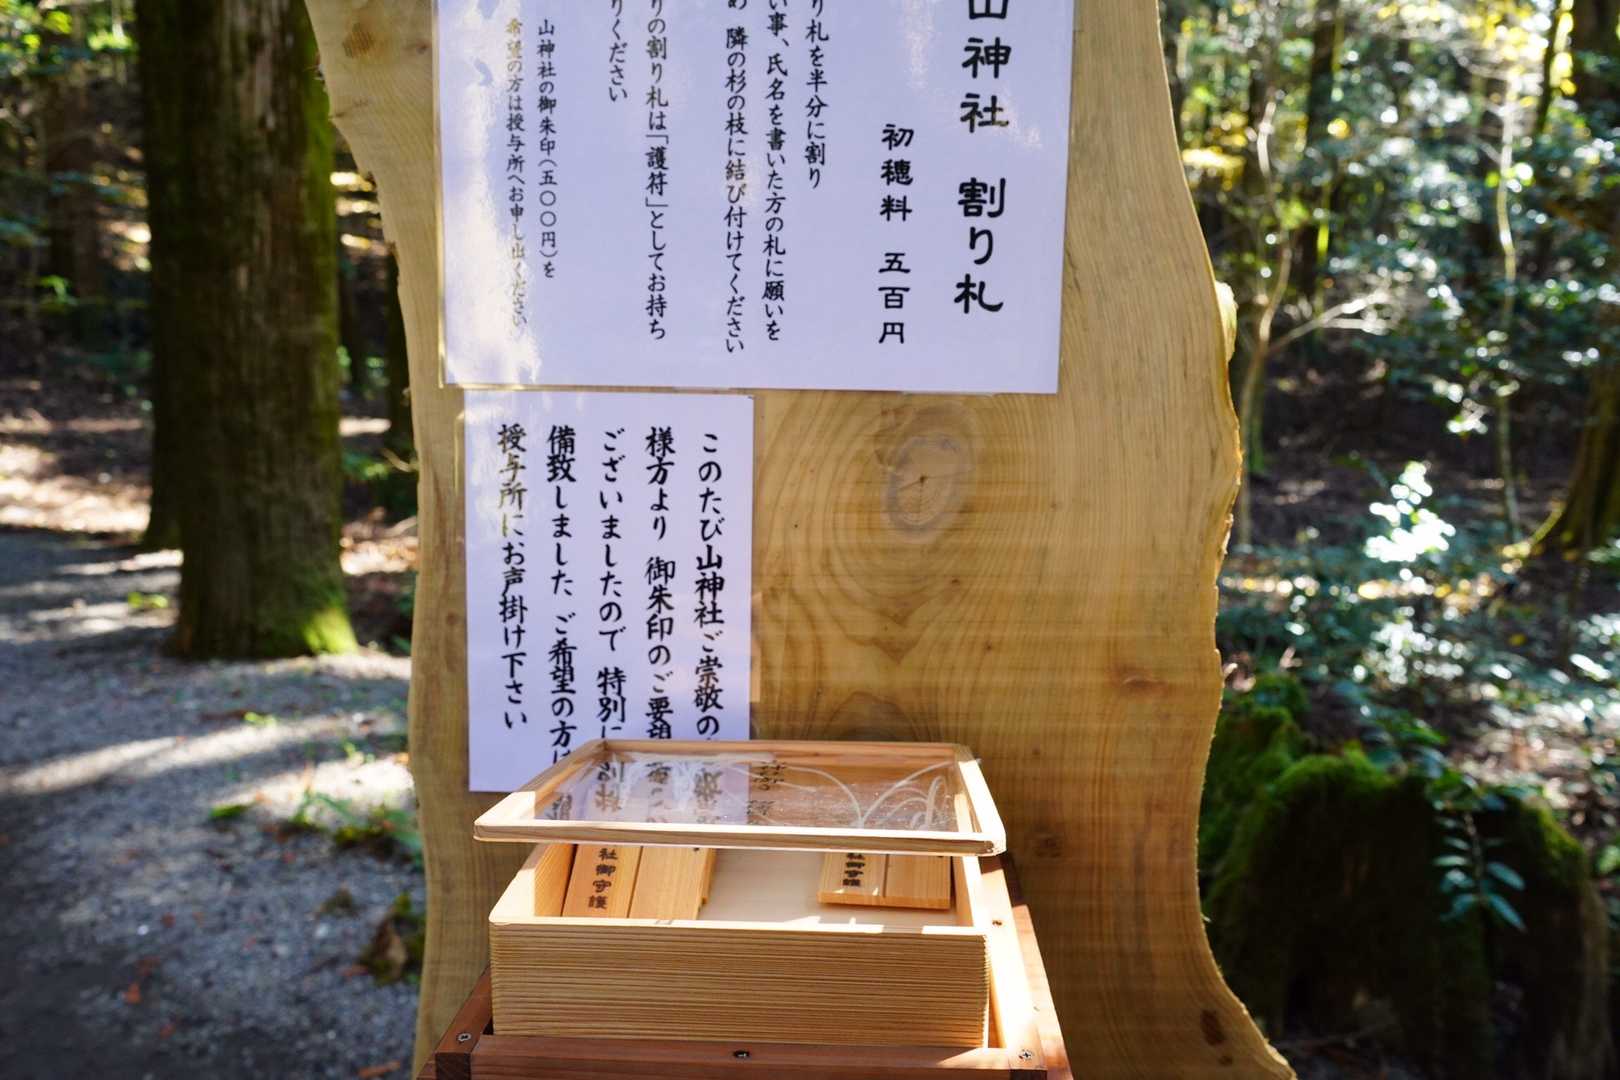 山神社 割り札
初穂料 五百円
り札を半分に割り
い事、氏名を書いた方の札に願いを
め 隣の杉の枝に結び付けてください
りの割り札は「護符」としてお持ち
りください
山神社の御朱印(五〇〇円)を
希望の方は授与所へお申し出ください
このたび山神社ご崇敬の
様方より 御朱印のご要望
ございましたので 特別に
備致しました ご希望の方は
授与所にお声掛け下さい
社御守護
社御守護